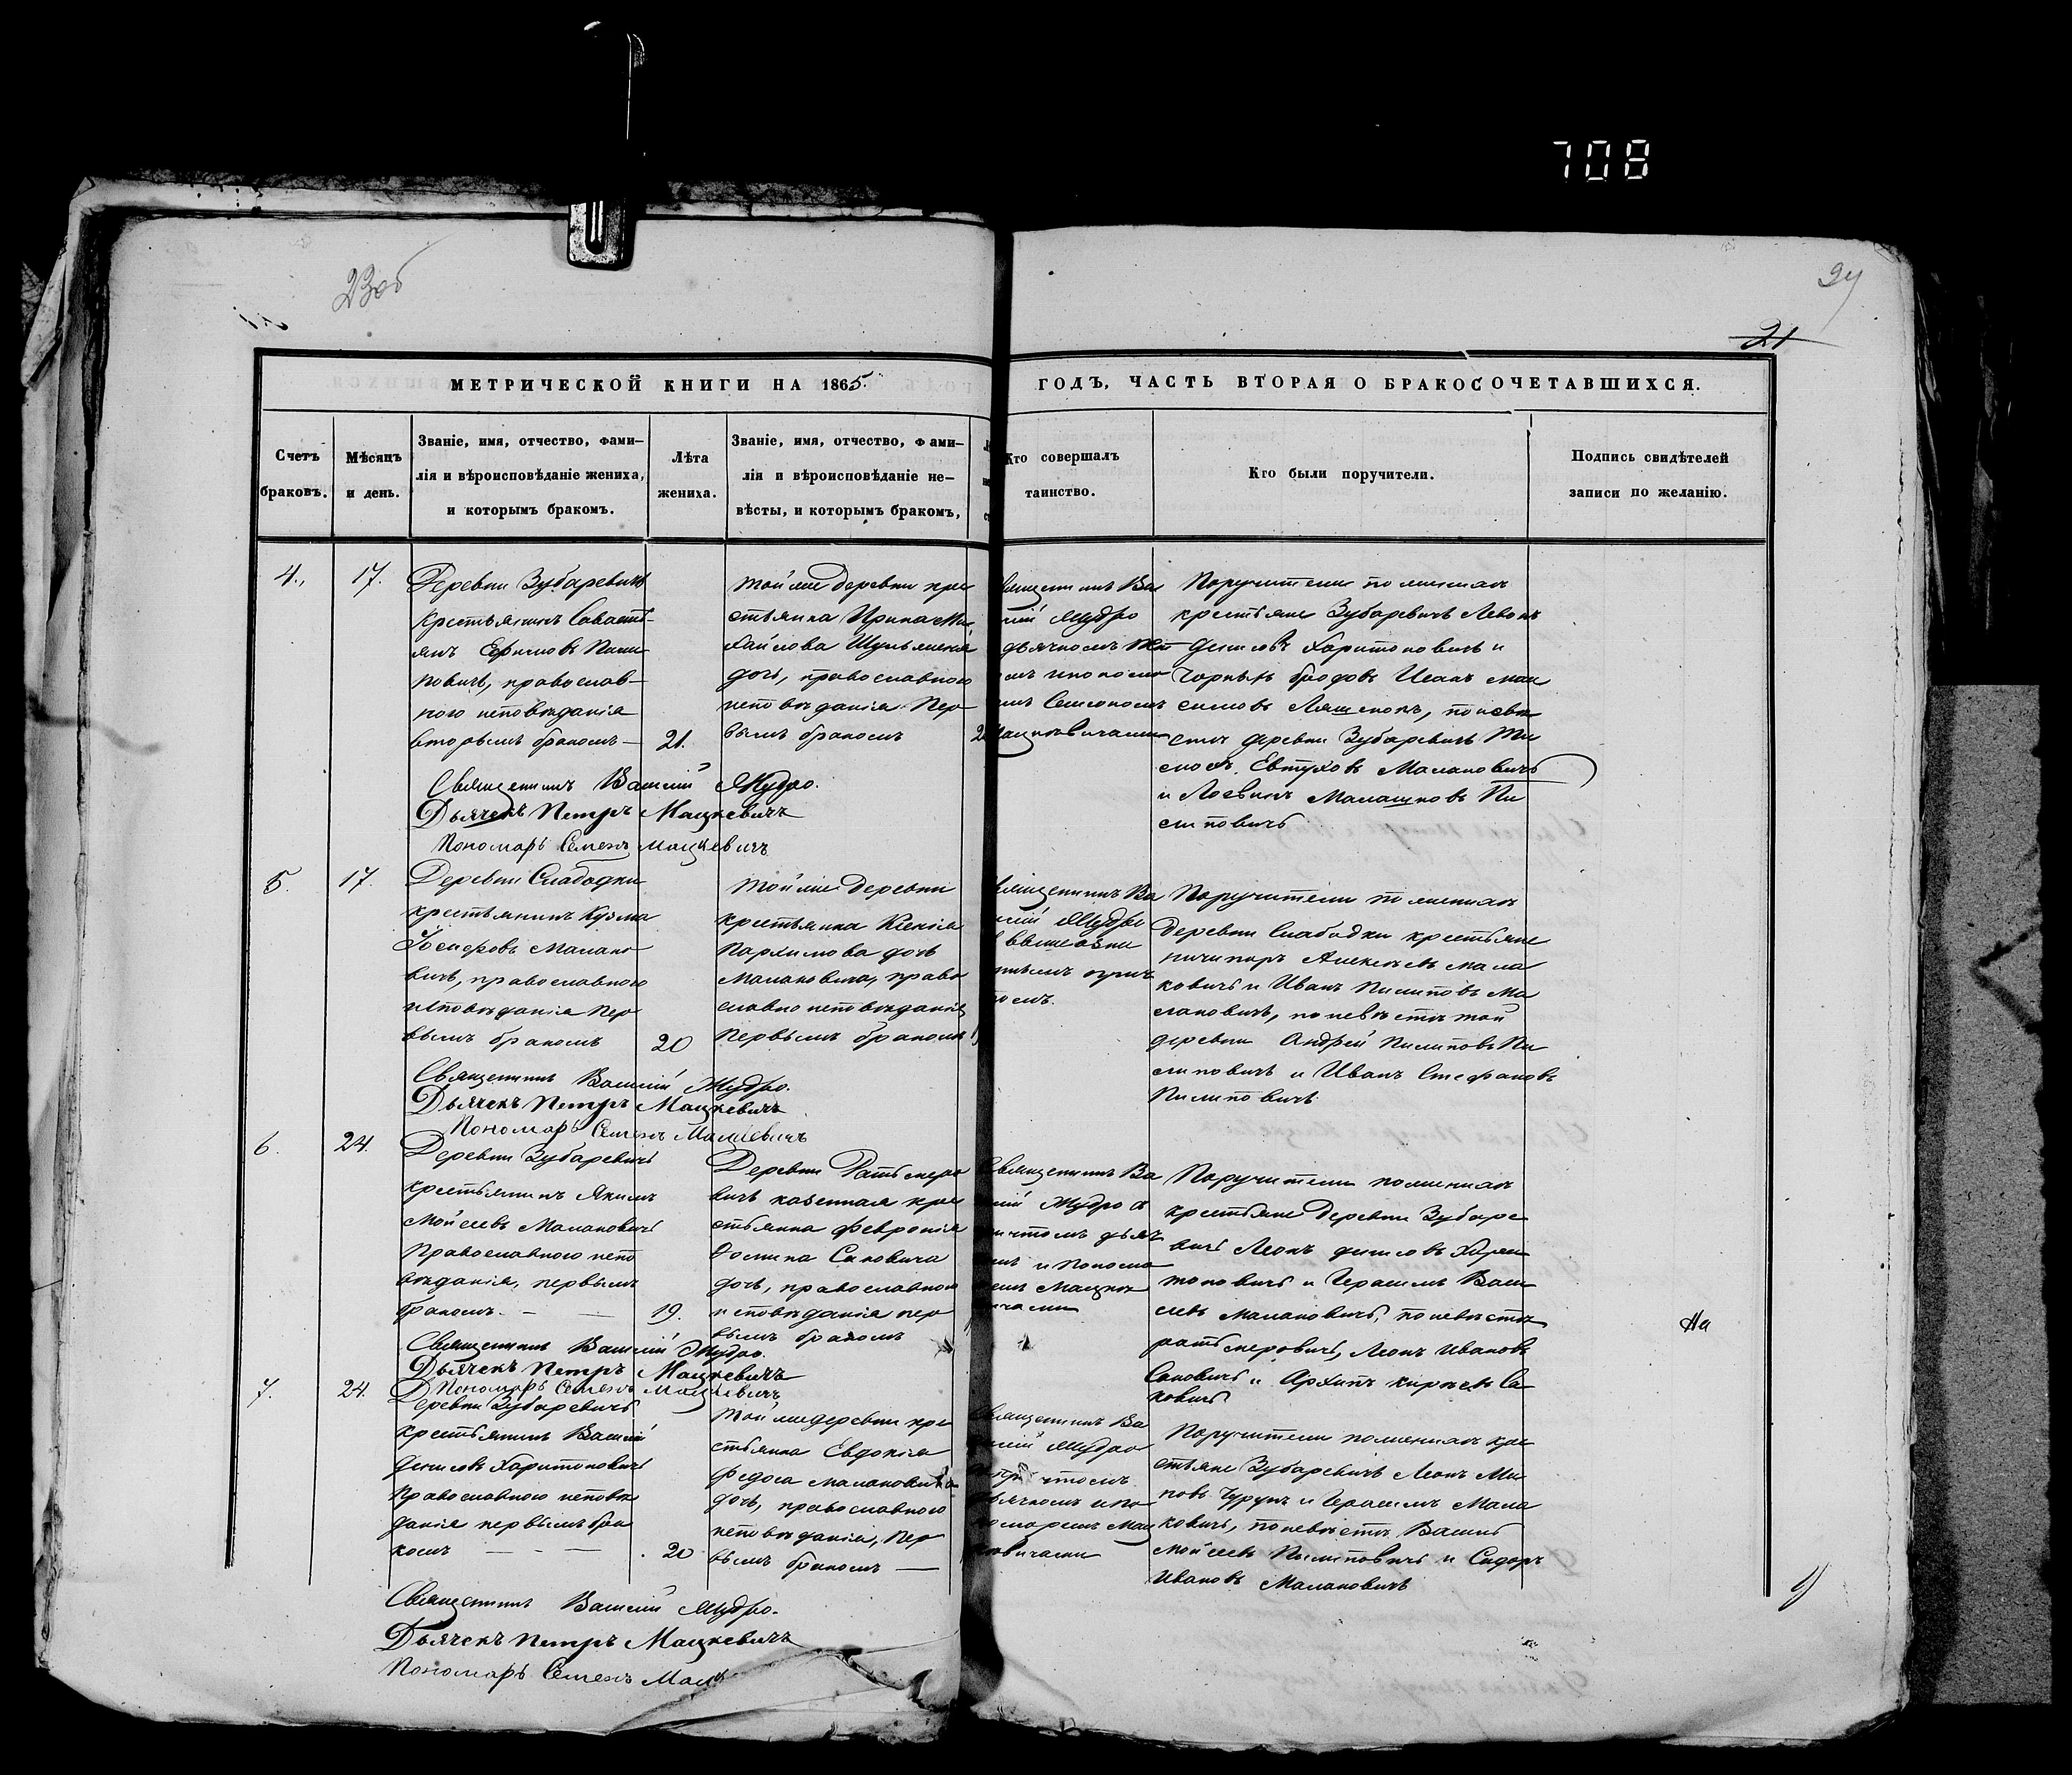 708
23об
24
21
МЕТРИЧЕСКОЙ КНИГИ НА 1865.
ГОДЪ, ЧАСТЬ ВТОРАЯ О БРАКОСОЧЕТАВШИХСЯ.
Счетъ браковъ.
Мѣсяцъ и день.
Званіе, имя, отчество, фами-
лія и вѣроисповѣданіе жениха,
и которымъ бракомъ.
Лѣта
жениха.
Званіе, имя, отчество, фами-
лія и вѣроисповѣданіе не-
вѣсты, и которымъ бракомъ,
Кто совершалъ
таинство.
Кто были поручители.
Подпись свидѣтелей
записи по желанію.
4.
17.
Деревни Зубаревичъ
крестьянинъ Савасть-
янъ
повичъ, православ-
ного исповѣданія
вторымъ бракомъ —
21.
Той же деревни кре
стьянка Ирина Ми
хайлова
дочь, православного
исповѣданія Пер
вымъ бракомъ
Священникъ Ва
силій Мудро
дьячкомъ
Мацкевичами
Поручители по женихѣ
крестьяне Зубаревичъ Левонъ
Денисовъ Харитоновичъ и
бродовъ Исакъ
по невѣ
стѣ деревни Зубаревичъ Ти
Евтуховъ Малановичъ
и Малашковъ Пи
липовичъ
Священникъ Василій Мудро.
Дьячекъ Петръ Мацкевичъ
Пономарь Семенъ Мацкевичъ
5.
17.
Деревни Слабодки
крестьянинъ Кузма
Іосифовъ Малано
вичъ, православного
исповѣданія Пер
вымъ бракомъ
20
Той же деревни
крестьянка Ксенія
Пархимова дочь
Малановича, право
славно исповѣданія
Первымъ бракомъ
Священникъ Ва
силій Мудро
Поручители по женихѣ
деревни Слабодки крестьяне
Ничипоръ Алексѣевъ Мала
новичъ и Иванъ Пилиповъ Ма
лановичъ, по невѣстѣ той
деревни Андрей Пилиповъ Пи
липовичъ и Иванъ Стефановъ
Пилиповичъ
Священникъ Василій Мудро.
Дьячекъ Петръ Мацкевичъ
Пономарь Семенъ Мацкевичъ
6.
24.
Деревни Зубаревичъ
крестьянинъ Якимъ
Мойсеевъ Малановичъ
Православного испо
вѣданія, первымъ
бракомъ. —
19.
Деревни Ратьмеро
вичъ казенная кре
стьянка Февронія
Сановича
дочь, православного
исповѣданія пер
вымъ бракомъ
Священникъ Ва
силій Мудро
Поручители по женихѣ
крестьяне Деревни Зубаре
вичъ Леонъ Денисовъ Хари
тоновичъ и Герасимъ Васи
левъ Малановичъ, по невѣстѣ
ратьмеровичъ, Леонъ Ивановъ
Сановичъ и Архипъ Са
новичъ
На
Священникъ Василій Мудро.
Дьячекъ Петръ Мацкевичъ
Пономарь Семенъ Мацкевичъ
7.
24.
Деревни Зубаревичъ
крестьянинъ Василій
Денисовъ Харитоновичъ
Православного исповѣ
данія первымъ бра
комъ — — —
20
Той же деревни кре
стьянка Евдокія
Федоса Малановича
дочь, православного
исповѣданія, Пер
вымъ бракомъ —
Священникъ Ва
силій Мудро
Поручители по женихѣ кре
стьяне Зубаревичъ Леонъ
и Герасимъ Мала
новичъ, по невѣстѣ Василь
Мойсеевъ Пилиповичъ и Сидоръ
Ивановъ Малановичъ
Священникъ Василій Мудро.
Дьячекъ Петръ Мацкевичъ
Пономарь Семенъ